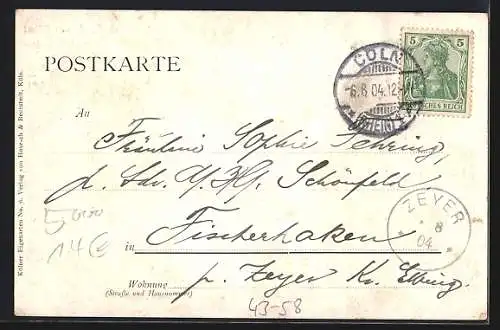 POSTKARTE
CÖLN
-6.8.04.12-
(RHEIN)
5 5
DEUTSCHES REICH
An
Fräulein Sophie Sehring,
Schönfeld
ZEYER
8
04
in Fischerhaken
Wohnung
(Straße und Hausnummer)
p. Zeyer Kr. Elbing.
43-58
14
Kölner Eigenarten No. 9. Verlag von Hoursch & Bechstedt, Köln.